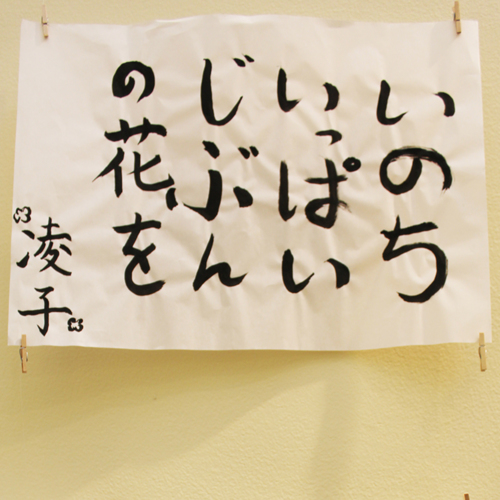 いのち
いっぱい
じぶん
の花を
凌子